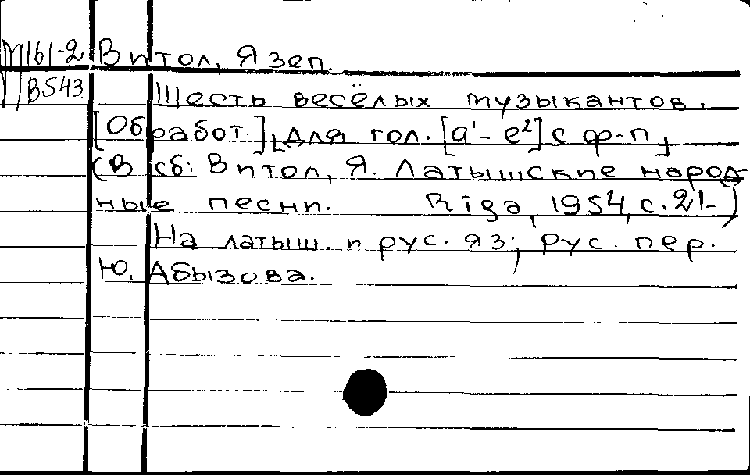 М161-2 Витол, Язеп.
В543 Шесть весёлых музыкантов.
[Обработ.] для гол. [a¹-e²] с ф-п,
(В сб: Витол, Я. Латышские народ
ные песни. Rīga, 1954, с. 21-)
На латыш. и рус. яз; рус. пер.
Ю. Абызова.